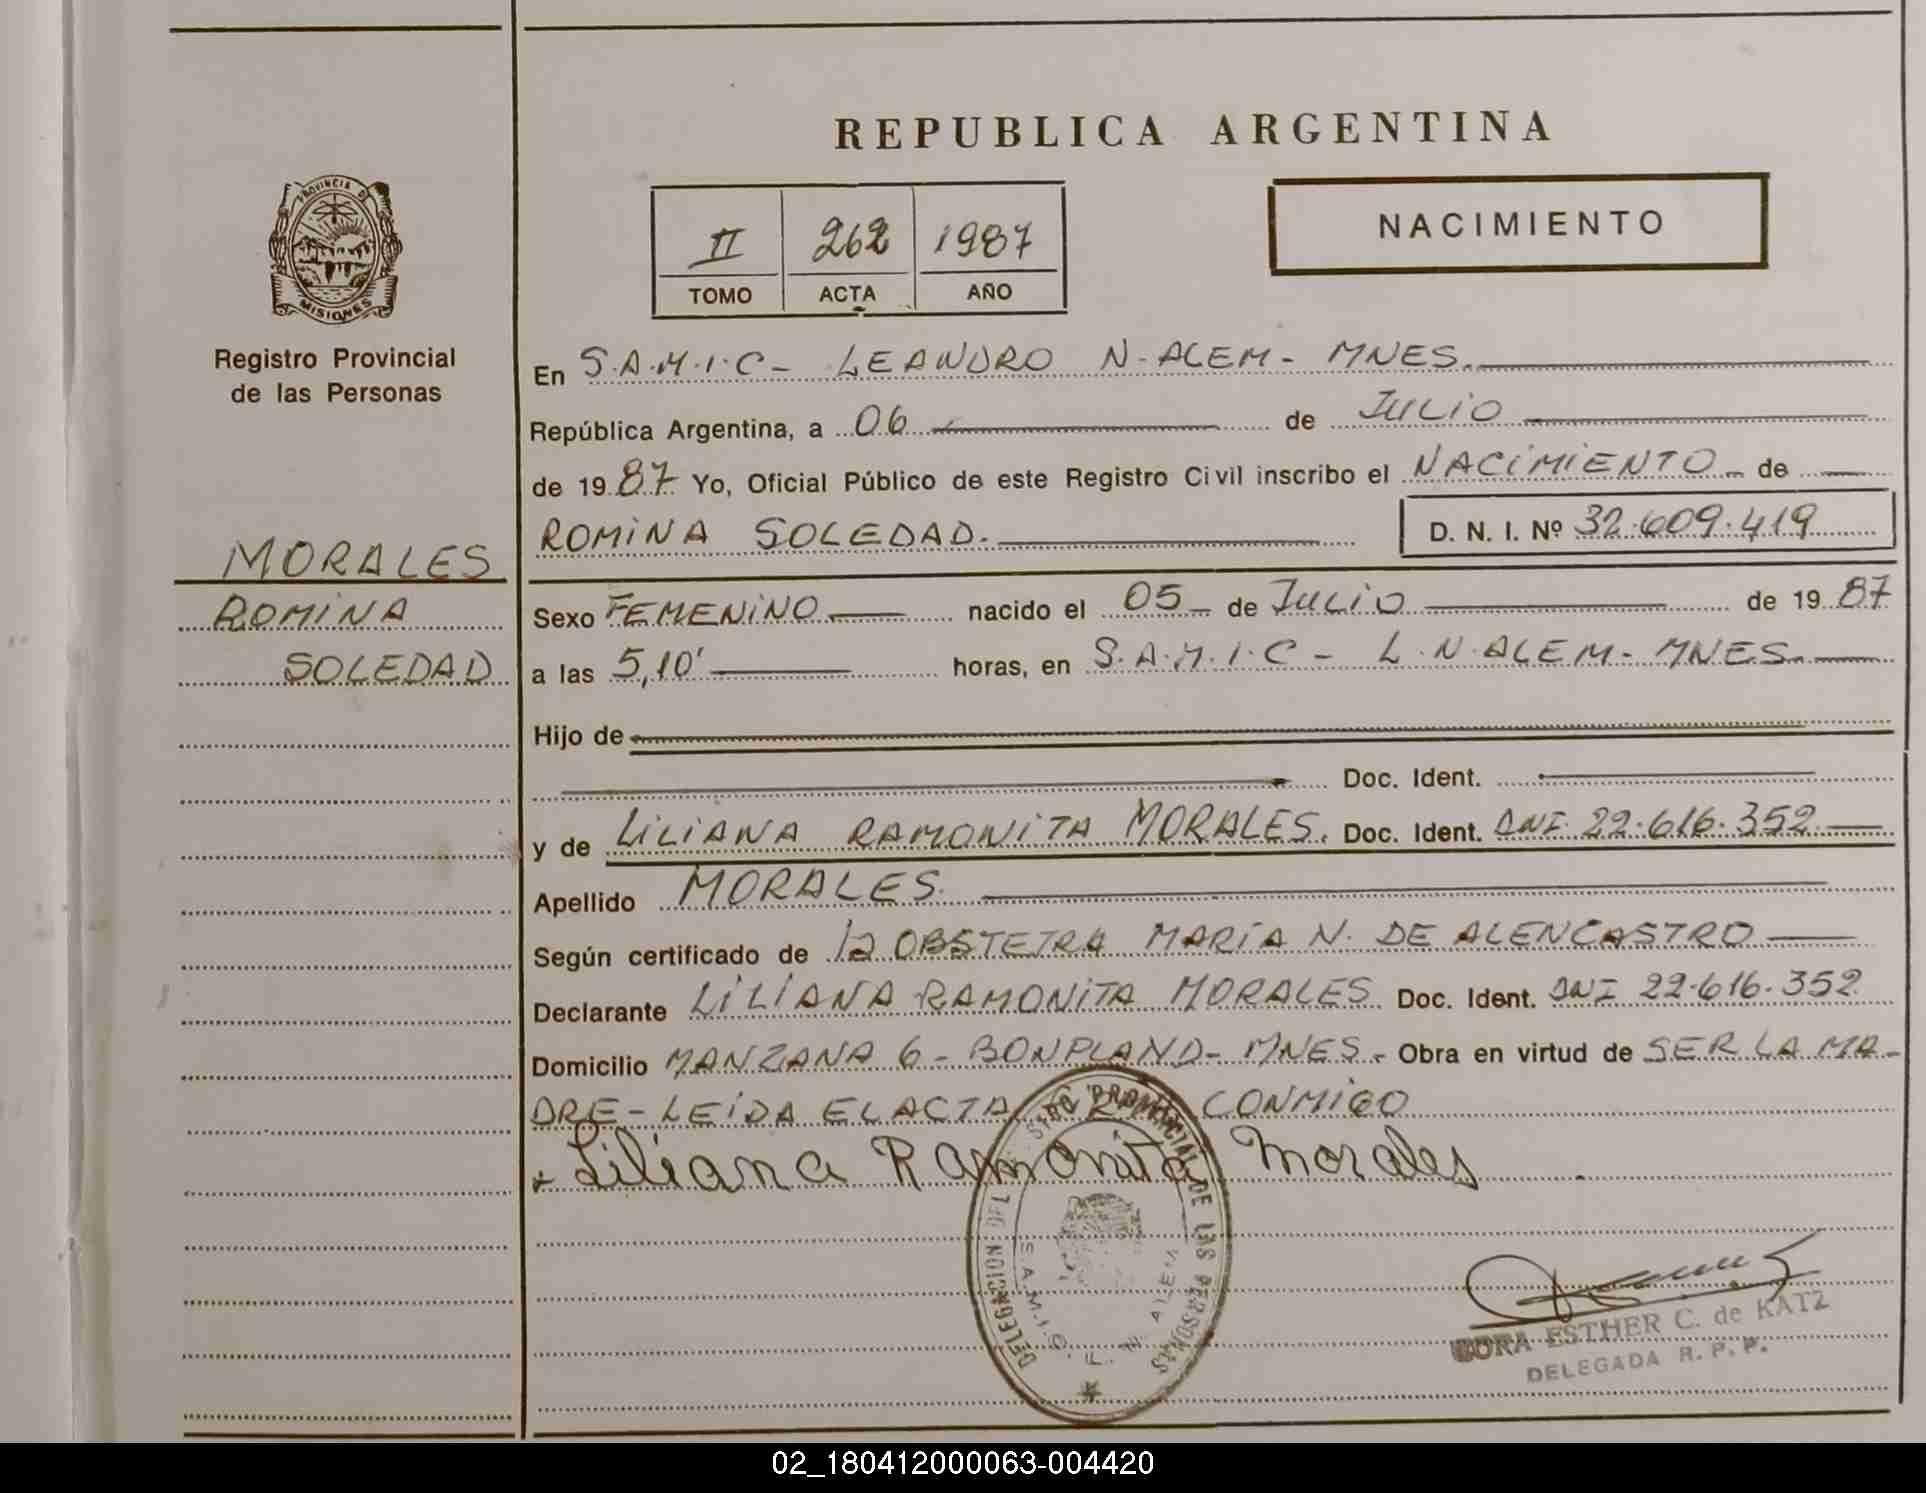 REPUBLICA ARGENTINA
PROVINCIA DE
MISIONES
Registro Provincial
de las Personas
II 262 1987
TOMO ACTA AÑO
NACIMIENTO
En S.A.M.I.C- LEANDRO N-ALEM- MNES.
República Argentina, a 06 de JULIO
de 1987 Yo, Oficial Público de este Registro Civil inscribo el NACIMIENTO de
ROMINA SOLEDAD. D. N. I. Nº 32.609.419
MORALES
ROMINA
SOLEDAD
Sexo FEMENINO nacido el 05 de JULIO de 1987
a las 5,10' horas, en S.A.M.I.C- L.N.ALEM- MNES.
Hijo de
Doc. Ident.
y de LILIANA RAMONITA MORALES. Doc. Ident. DNI 22.616.352
Apellido MORALES.
Según certificado de la OBSTETRA MARIA N. DE ALENCASTRO
Declarante LILIANA RAMONITA MORALES Doc. Ident. DNI 22.616.352
Domicilio MANZANA 6- BONPLAND- MNES- Obra en virtud de SER LA MA-
DRE- LEIDA EL ACTA CONMIGO
Liliana Ramonita Morales
DELEGACION DEL PROVINCIAL DE LAS PERSONAS
S.A.M.I.C. L. N. ALEM
DORA ESTHER C. de KATZ
DELEGADA R. P. P.
02_180412000063-004420